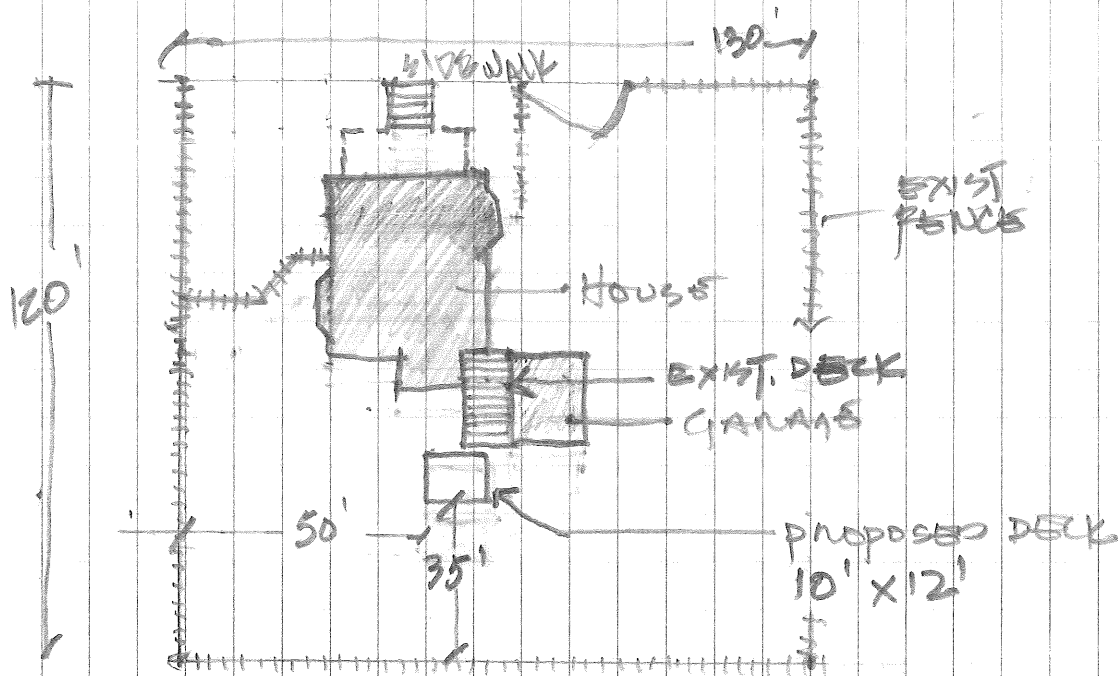 130'
SIDEWALK
EXIST
FENCE
120'
HOUSE
EXIST. DECK
GARAGE
50'
35'
PROPOSED DECK
10' X 12'